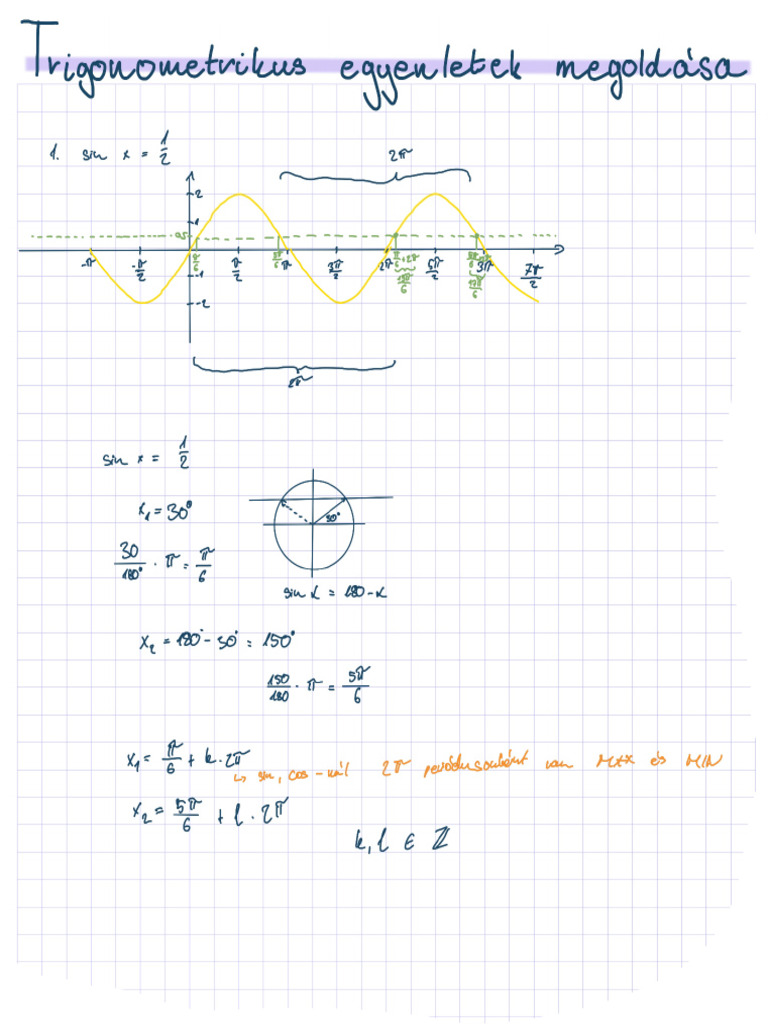 Trigonometrikus egyenletek megoldása
1. sin x = 1/2
2π
2
1
0,5
-π -π/2 π/6 π/2 5π/6 π 3π/2 2π π/6+2π 5π/2 5π/6 3π 7π/2
13π/6 17π/6
-1
-2
2π
sin x = 1/2
x₁ = 30°
30°
30/180° · π = π/6
sin α = 180 - α
x₂ = 180° - 30° = 150°
150/180 · π = 5π/6
x₁ = π/6 + k · 2π
↳ sin, cos-nál 2π periódusonként van MAX és MIN
x₂ = 5π/6 + l · 2π
k, l ∈ ℤ